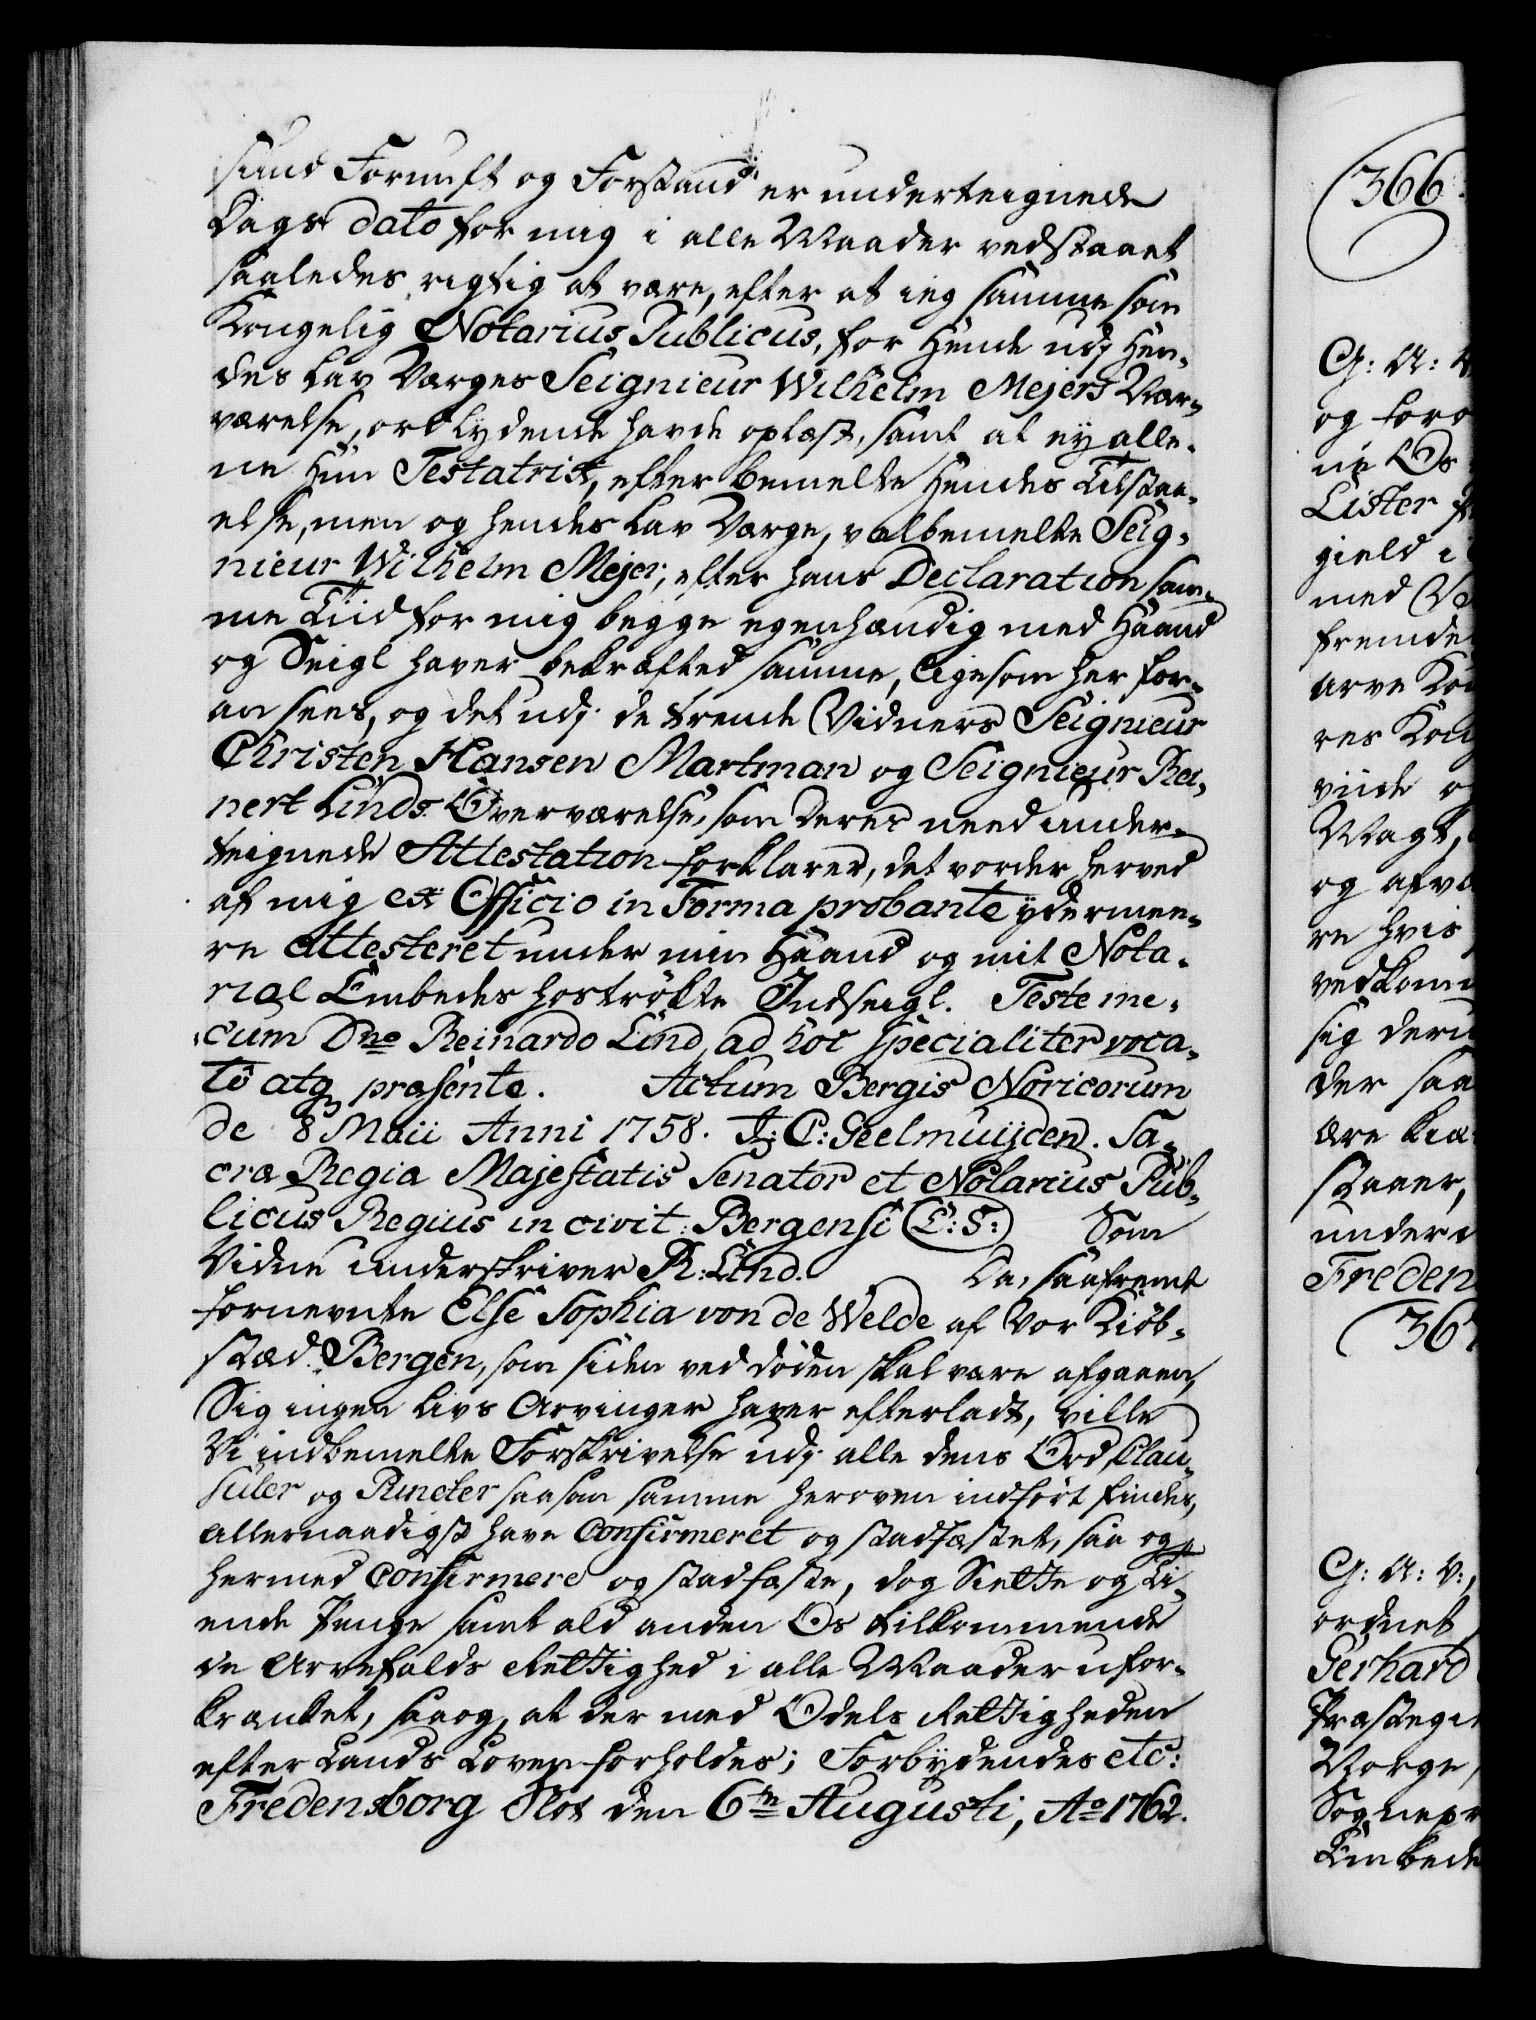 sund Fornuft og Forstand er underteignede
Dags dato for mig i alle Maader vedstaaet
saaledes rigtig at være, efter at ieg samme som
Kongelig Notarius Publicus, for Hende udj Hen-
des Lav Værges Seignieur Wilhelm Mejers Nær-
værelse, ordlydende havde oplæst, samt at ey alle-
ne Hun Testatrix, efter bemelte Hendes Tilstaa-
else, men og hendes Lav Værge, velbemelte Seig-
nieur Wilhelm Mejer, efter hans Declaration sam-
me Tiid for mig begge egenhændig med Haand
og Seigl haver bekræfted samme, ligesom her for-
an sees, og det udj de trende Vidners Seignieur
Christen Hansen Martman og Seignieur Rei-
nert Linds Overværelse, som deres need under-
teignede Attestation forklarer, det vorder herved
af mig ex Officio in Forma probante ydermee-
re attesteret under min Haand og mit Nota-
rial Embedes hostrøkte Indseigl. Teste me-
cum Dno Reinardo Lind, ad hoc specialiter voca-
to atq præsente. Actum Bergis Noricorum
de 8 Maii Anni 1758. J: C: Geelmuijden. Sa-
cræ Regia Majestatis Senator et Notarius Pub-
licus Regius in civit: Bergensi (L: S:) Som
Vidne underskriver R: Lind. Da, saafremt
fornevnte Else Sophia von de Welde af Vor Kiøb-
stæd Bergen, som siden ved døden skal være afgaaen,
Sig ingen Livs Arvinger haver efterladt, ville
Vi indbemelte Forskrivelse udj alle dens Ord, Clau-
suler og Puncter saasom samme heroven indført findes,
allernaadigst have Confirmeret og stadfæstet, saa og
hermed Confirmere og stadfæste, dog Siette og Ti-
ende Penge samt ald anden Os tilkommende
de Arvefalds Rettighed i alle Maader ufor-
krænket, saa og, at der med Odels Rettigheden
efter Lands Loven forholdes; Forbydendes etc:
Fredensborg Slot den 6te Augusti, Ao 1762.
366.
G: A: V
og foro
ne Os
Lister
gield i
med
fremde
arve
res
viide
Magt,
og afv
re hvis
vedkom
sig deru
der saa
ære
staaer,
under
Freden
367
G: A: V:,
ordnet
Gerhard
Præstegi
Norge,
Sognepr
Embede